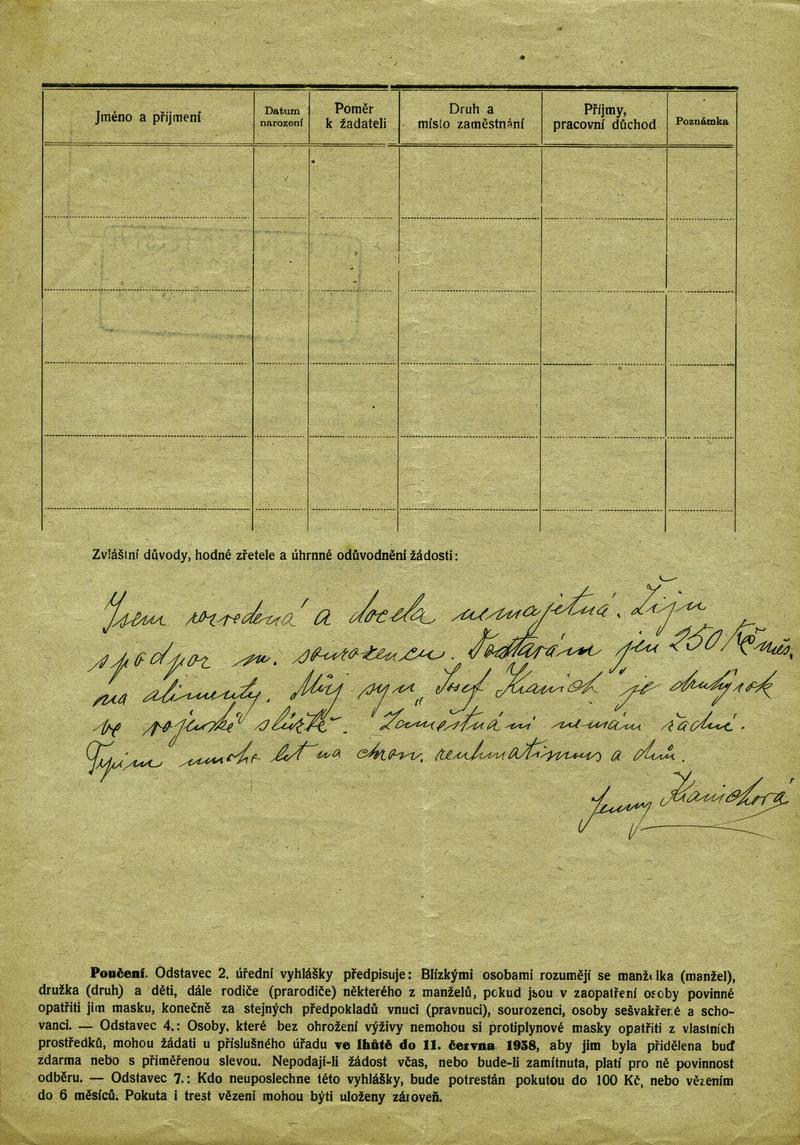 Jméno a příjmení
Datum
narození
Poměr
k žadateli
Druh a
místo zaměstnání
Příjmy,
pracovní důchod
Poznámka
Zvláštní důvody, hodné zřetele a úhrnné odůvodnění žádosti:
Jsem rozvedená a docela nemajetná. Žiju
s podpor m. sourozenců. Dostávám jen 250 Kč měs.
na alimenty. Můj syn "Josef Kanich" je druhý rok
ve vojenské službě. Zaměstnání nemám řádné.
Trpím mnoho let na chron. reuhmatismus a
Jenny Kanichová
Poučení. Odstavec 2. úřední vyhlášky předpisuje: Blízkými osobami rozumějí se manželka (manžel),
družka (druh) a děti, dále rodiče (prarodiče) některého z manželů, pokud jsou v zaopatření osoby povinné
opatřiti jim masku, konečně za stejných předpokladů vnuci (pravnuci), sourozenci, osoby sešvakřené a scho-
vanci. — Odstavec 4.: Osoby, které bez ohrožení výživy nemohou si protiplynové masky opatřiti z vlastních
prostředků, mohou žádati u příslušného úřadu ve lhůtě do 11. června 1938, aby jim byla přidělena buď
zdarma nebo s přiměřenou slevou. Nepodají-li žádost včas, nebo bude-li zamítnuta, platí pro ně povinnost
odběru. — Odstavec 7.: Kdo neuposlechne této vyhlášky, bude potrestán pokutou do 100 Kč, nebo vězením
do 6 měsíců. Pokuta i trest vězení mohou býti uloženy zároveň.